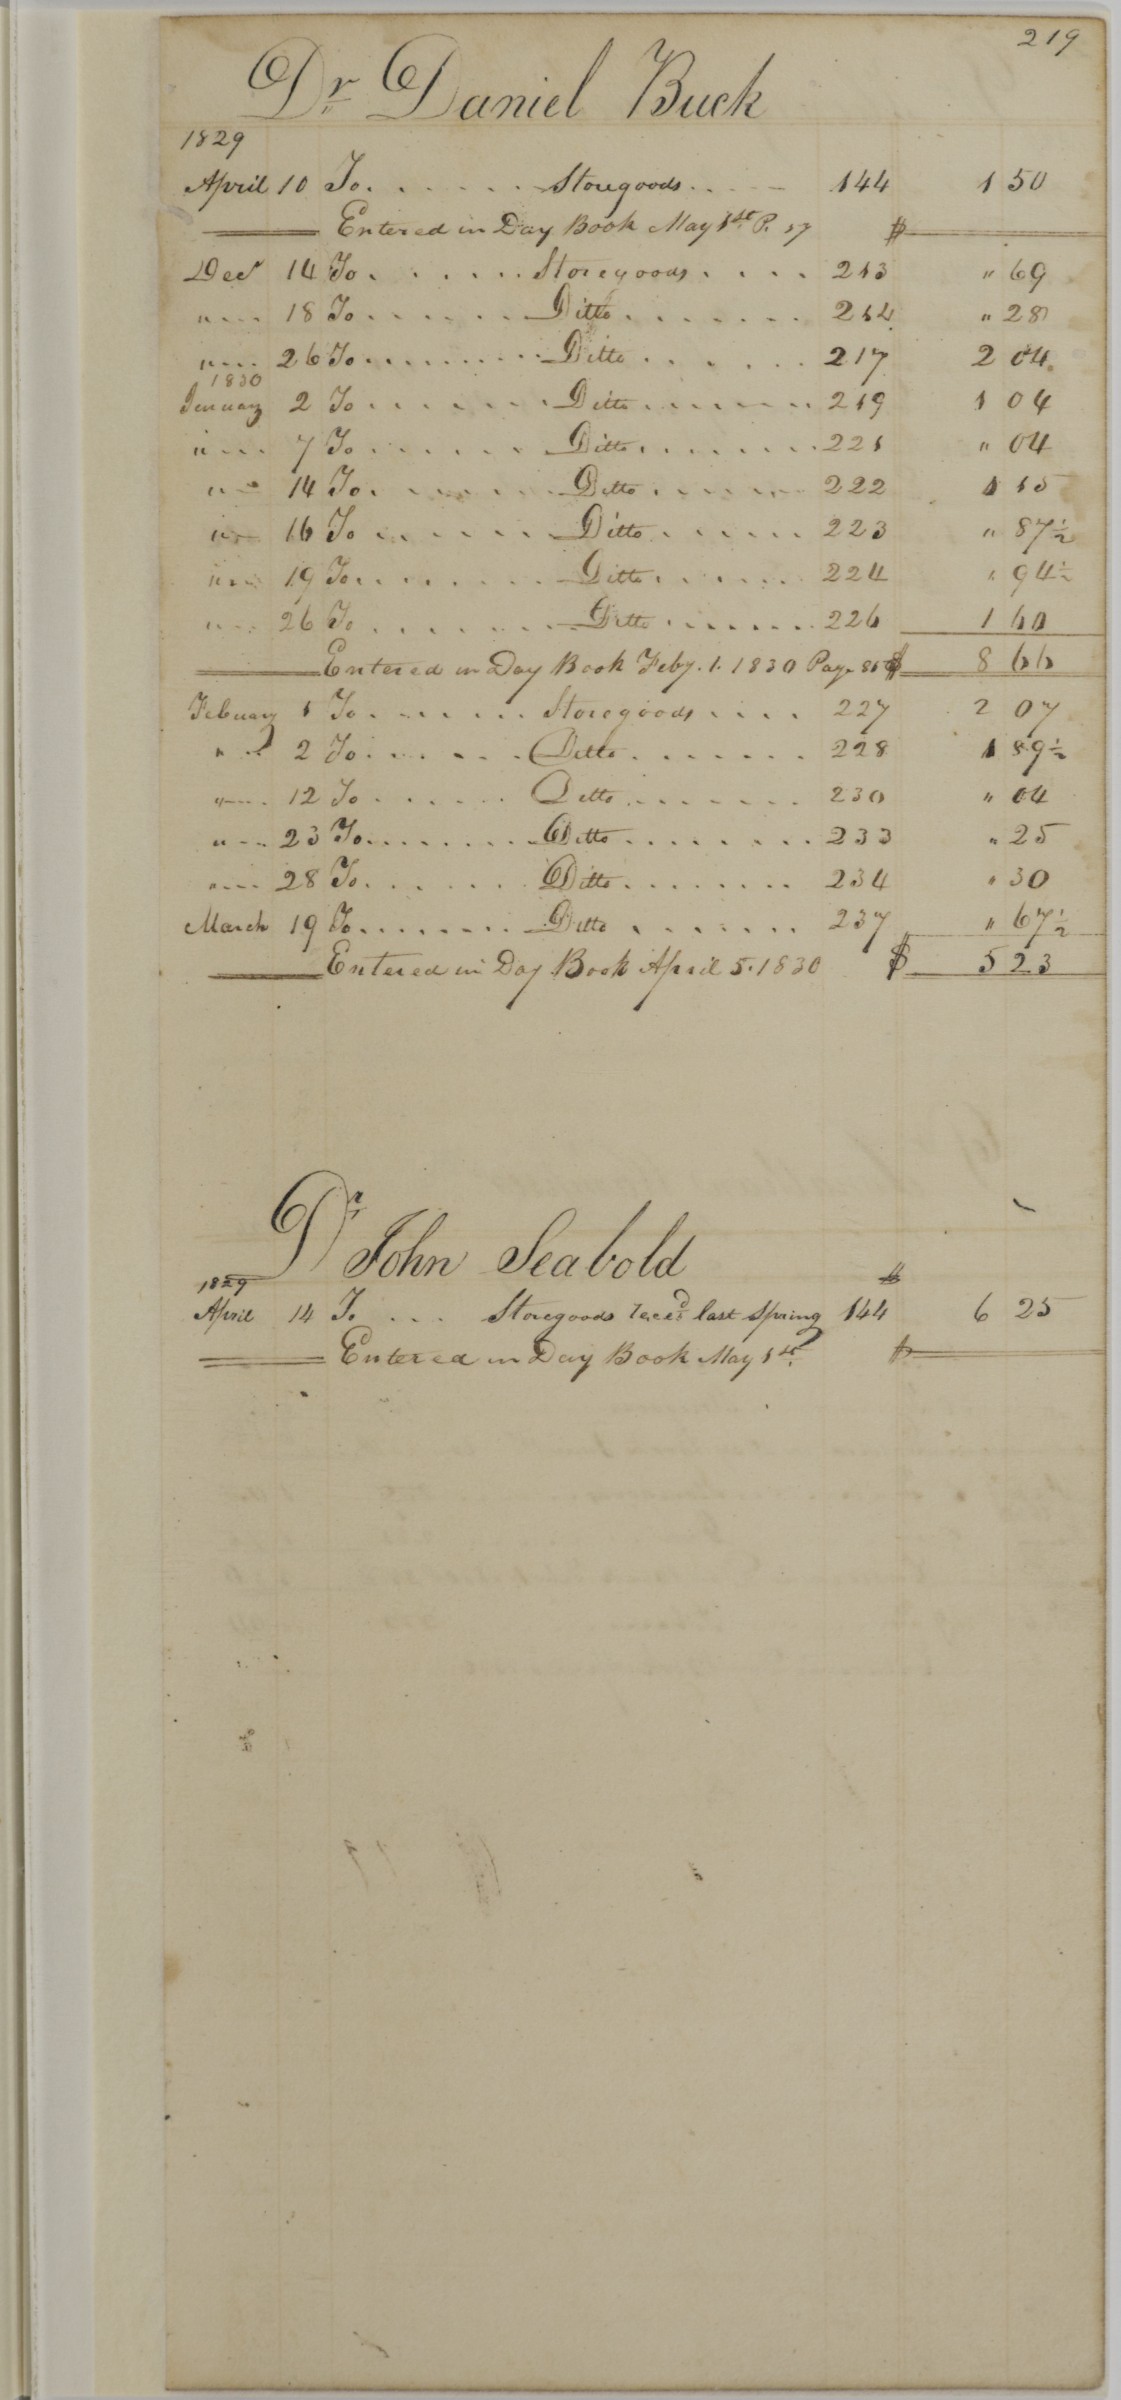 219
Dr Daniel Buck
1829
April 10 To. . . . . . . Storegoods. . . . . 144 1 50
Entered in Day Book May 1st P. 17 $
Decr 14 To. . . . . . . Storegoods. . . . 213 " 69
" --- 18 To. . . . . . . Ditto. . . . . . . . 214 " 28
" --- 26 To. . . . . . . . . Ditto. . . . . . 217 2 04
1830
January 2 To. . . . . . . Ditto. . . . . . . 219 1 04
" --- 7 To. . . . . . . Ditto. . . . . . . . 221 " 04
" -- 14 To. . . . . . . Ditto. . . . . . . 222 1 15
" -- 16 To. . . . . . . Ditto. . . . . . 223 " 87½
" --- 19 To. . . . . . . Ditto. . . . . . 224 " 94½
" --- 26 To. . . . . . . Ditto. . . . . . . 226 1 60
Entered in Day Book Feby. 1. 1830 Page $ 8 66
Febuary 1 To. . . . . . . Storegoods. . . . 227 2 07
" -- 2 To. . . . . . . Ditto. . . . . . . 228 1 89½
" --- 12 To. . . . . . Ditto. . . . . . . . 230 " 04
" --- 23 To. . . . . . . . Ditto. . . . . . . . 233 " 25
" --- 28 To. . . . . . Ditto. . . . . . . . 234 " 30
March 19 To. . . . . . . . Ditto. . . . . . . 237 " 67½
Entered in Day Book April 5. 1830 $ 5 23
Dr John Seabold
1829 $
April 14 To . . . Storegoods Recd last Spring 144 6 25
Entered in Day Book May 1st. $